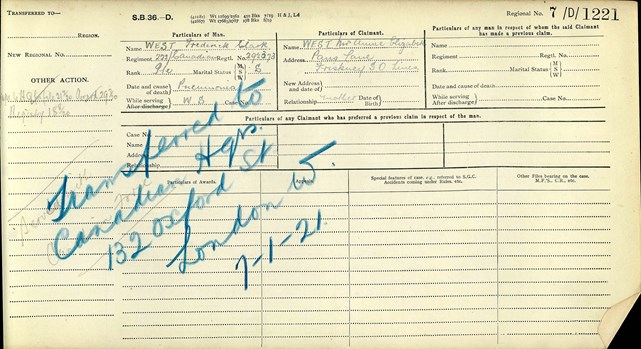 TRANSFERRED TO—
Region.
NEW REGIONAL No.
OTHER ACTION.
S.B.36.—D.
Regional No. 7/D/1221
Particulars of Man.
Name WEST Frederick Clark
Regiment Canadian Regtl. No.
Rank Pte Marital Status M S W S
Date and cause of death Pneumonia
While serving W.B. Case No.
After discharge
Particulars of Claimant.
Name WEST Mrs Annie Elizabeth
Address
New Address and Date
Relationship Mother Date of Birth
Particulars of any man in respect of whom the said Claimant has made a previous claim.
Name
Regiment Regtl. No.
Rank Marital Status M S W
Date and cause of death
While serving Case No.
After discharge
Particulars of any Claimant who has preferred a previous claim in respect of the man.
Case No.
Name
Address
Relationship
Particulars of Awards.
Approved
Special features of case, e.g., referred to S.G.C. Accidents coming under Rules, etc.
Other Files bearing on the case. M.F.'s, C.R., etc.
Transferred to
Canadian Hqrs.
132 Oxford St
London W.
7-1-21